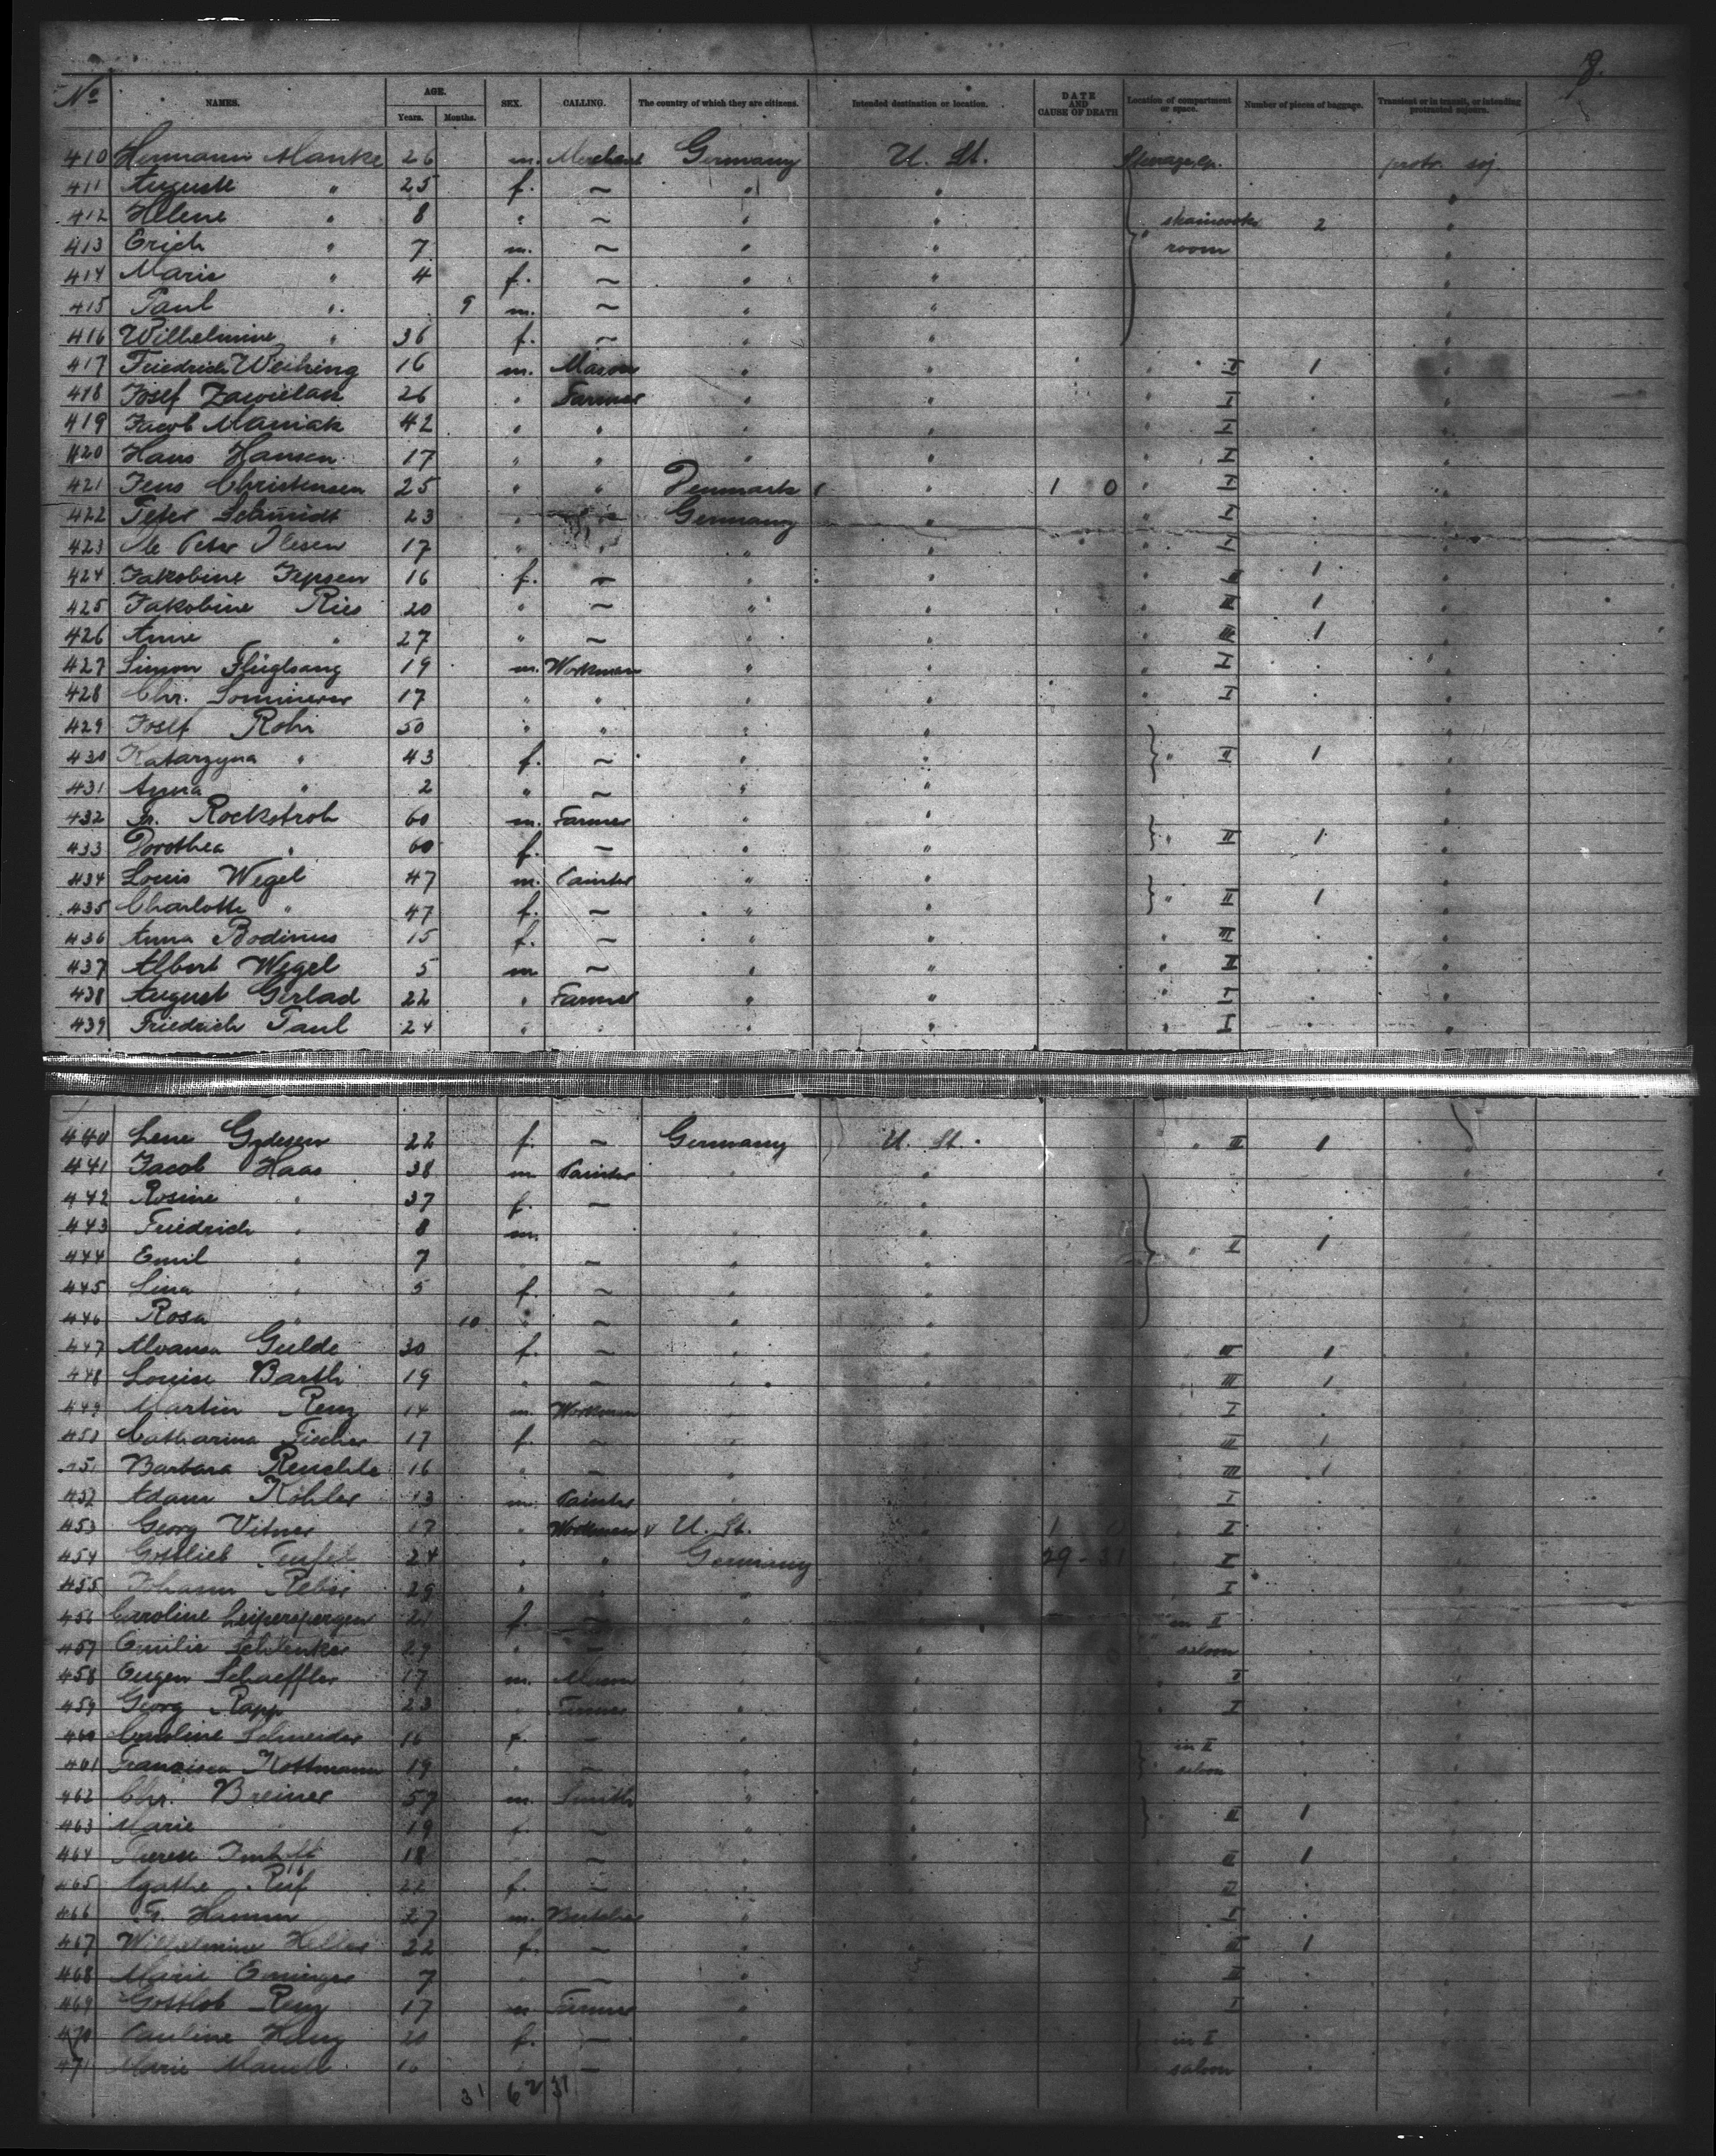 8.
No NAMES. AGE. SEX. CALLING. The country of which they are citizens. Intended destination or location. DATE AND CAUSE OF DEATH Location of compartment or space. Number of pieces of baggage. Transient or in transit, or intending protracted sojourn.
Years. Months.
410 Hermann Manke 26 m. Merchant Germany U. St. Steerage, protr. soj.
411 Auguste " 25 f. ~ " " "
412 Helene " 8 " ~ " " 2 "
413 Erich " 7 m. ~ " " " room "
414 Marie " 4 f. ~ " " "
415 Paul " 9 m. ~ " " "
416 Wilhelmine " 36 f. ~ " " "
417 Friedrich Weihing 16 m. Mason " " " I 1 "
418 Josef Zawielak 26 " Farmer " " " I " "
419 Jacob Maniak 42 " " " " " I " "
420 Hans Hansen 17 " " " " " I " "
421 Jens Christensen 25 " " Denmark " 1 0 " I " "
422 Peter Schmidt 23 " " Germany " " I " "
423 Ole Peter Olesen 17 " " " " " I " "
424 Jakobine Jepsen 16 f. ~ " " " III 1 "
425 Jakobine Ries 20 " ~ " " " III 1 "
426 Anne " 27 " ~ " " " III 1 "
427 Simon Flüglsang 19 m. Workman " " " I " "
428 Chr. Sommerer 17 " " " " " I " "
429 Josef Robi 50 " " " " "
430 Katarzyna " 43 f. ~ " " " II 1 "
431 Anna " 2 " ~ " " "
432 Fr. Rockstroh 60 m. Farmer " " "
433 Dorothea " 60 f. ~ " " " II 1 "
434 Louis Wegel 47 m. Painter " " "
435 Charlotte " 47 f. ~ " " " II 1 "
436 Anna Bodinus 15 f. ~ " " " III " "
437 Albert Wegel 5 m ~ " " " II " "
438 August Gerlad 22 " Farmer " " " I " "
439 Friedrich Paul 24 " " " " " I " "
440 Lene Gydesen 22 f. ~ Germany U. St. " III 1 "
441 Jacob Haas 38 m Painter " " "
442 Rosine " 37 f. ~ " "
443 Friedrich " 8 m. " " "
444 Emil " 7 " ~ " " " II 1 "
445 Lina " 5 f. ~ " " "
446 Rosa " 10 " ~ " " "
447 Gulde 30 f. ~ " " " III 1 "
448 Louise Barth 19 " ~ " " " III 1 "
449 Martin Renz 14 m. Workman " " " I " "
450 Catharina Fischer 17 f. ~ " " " III 1 "
451 Barbara Reuchle 16 " ~ " " " III 1 "
452 Adam Köhler 13 m. Painter " " " I " "
453 Georg Vitner 17 " Workman U. St. " 1 0 " I " "
454 Gottlieb Teufel 24 " " Germany " 29-31 " I " "
455 Johann Reber 29 " " " " " I " "
456 Caroline 21 f. ~ " " " in II "
457 Emilie Schlenker 29 " ~ " " saloon " "
458 Eugen Schaeffler 17 m. Mason " " " I " "
459 Georg Rapp 23 " Farmer " " " I " "
460 Caroline Schneider 16 f. ~ " " in II " "
461 Francisca Kottmann 19 " ~ " " saloon " "
462 Chr. Breiner 57 m. Smith " " " II 1 "
463 Marie " 19 f. ~ " " "
464 Therese Imhoff 18 " ~ " " " II 1 "
465 Agathe Ruf 22 f. ~ " " " II " "
466 F. Hamm 27 m. Butcher " " " I " "
467 Wilhelmine Heller 22 f. ~ " " " II 1 "
468 Marie Eninger 7 " ~ " " " II " "
469 Gottlob Renz 17 m Farmer " " " I " "
470 Pauline Haug 20 f. ~ " " in II " "
471 Marie 16 " ~ " " saloon " "
31 62 31